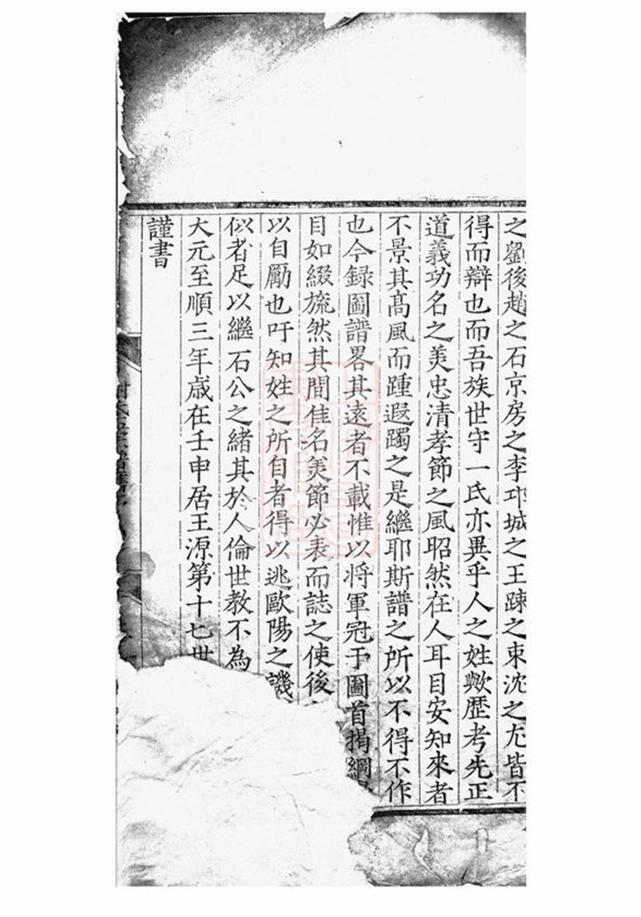 之劉後趙之石京房之李邛城之王踈之束沈之尤皆不
得而辯也而吾族世守一氏亦異乎人之姓歟歷考先正
道義功名之美忠清孝節之風昭然在人耳目安知來者
不景其髙風而踵遐躅之是繼耶斯譜之所以不得不作
也今録圖譜畧其遠者不載惟以将軍冠于圖首揭綱
目如綴旒然其間佳名美節必表而誌之使後
以自勵也吁知姓之所自者得以逃歐陽之譏
似者足以繼石公之緒其於人倫世教不為
大元至順三年歲在壬申居王源第十七世
謹書